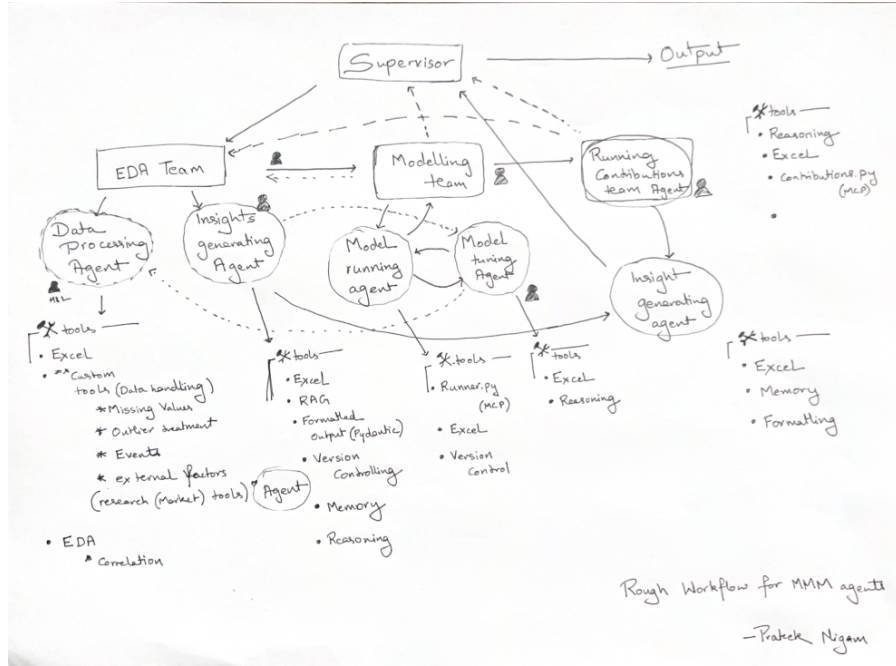 Supervisor
Output
EDA Team
Modelling
team
Running
Contributions
team Agent
tools
• Reasoning
• Excel
• Contributions.py
(MCP)
•
Data
Processing
Agent
Insights
generating
Agent
Model
running
agent
Model
tuning
Agent
Insight
generating
agent
tools
• Excel
• **Custom
tools (Data handling)
* Missing Values
* Outlier treatment
* Events
* external factors
(research (Market) tools)
Agent
• EDA
* Correlation
tools
• Excel
• RAG
• Formatted
output (Pydantic)
• Version
Controlling
• Memory
• Reasoning
tools
• Runner.py
(MCP)
• Excel
• Version
Control
tools
• Excel
• Reasoning
tools
• Excel
• Memory
• Formatting
Rough Workflow for MMM agents
- Prateek Nigam